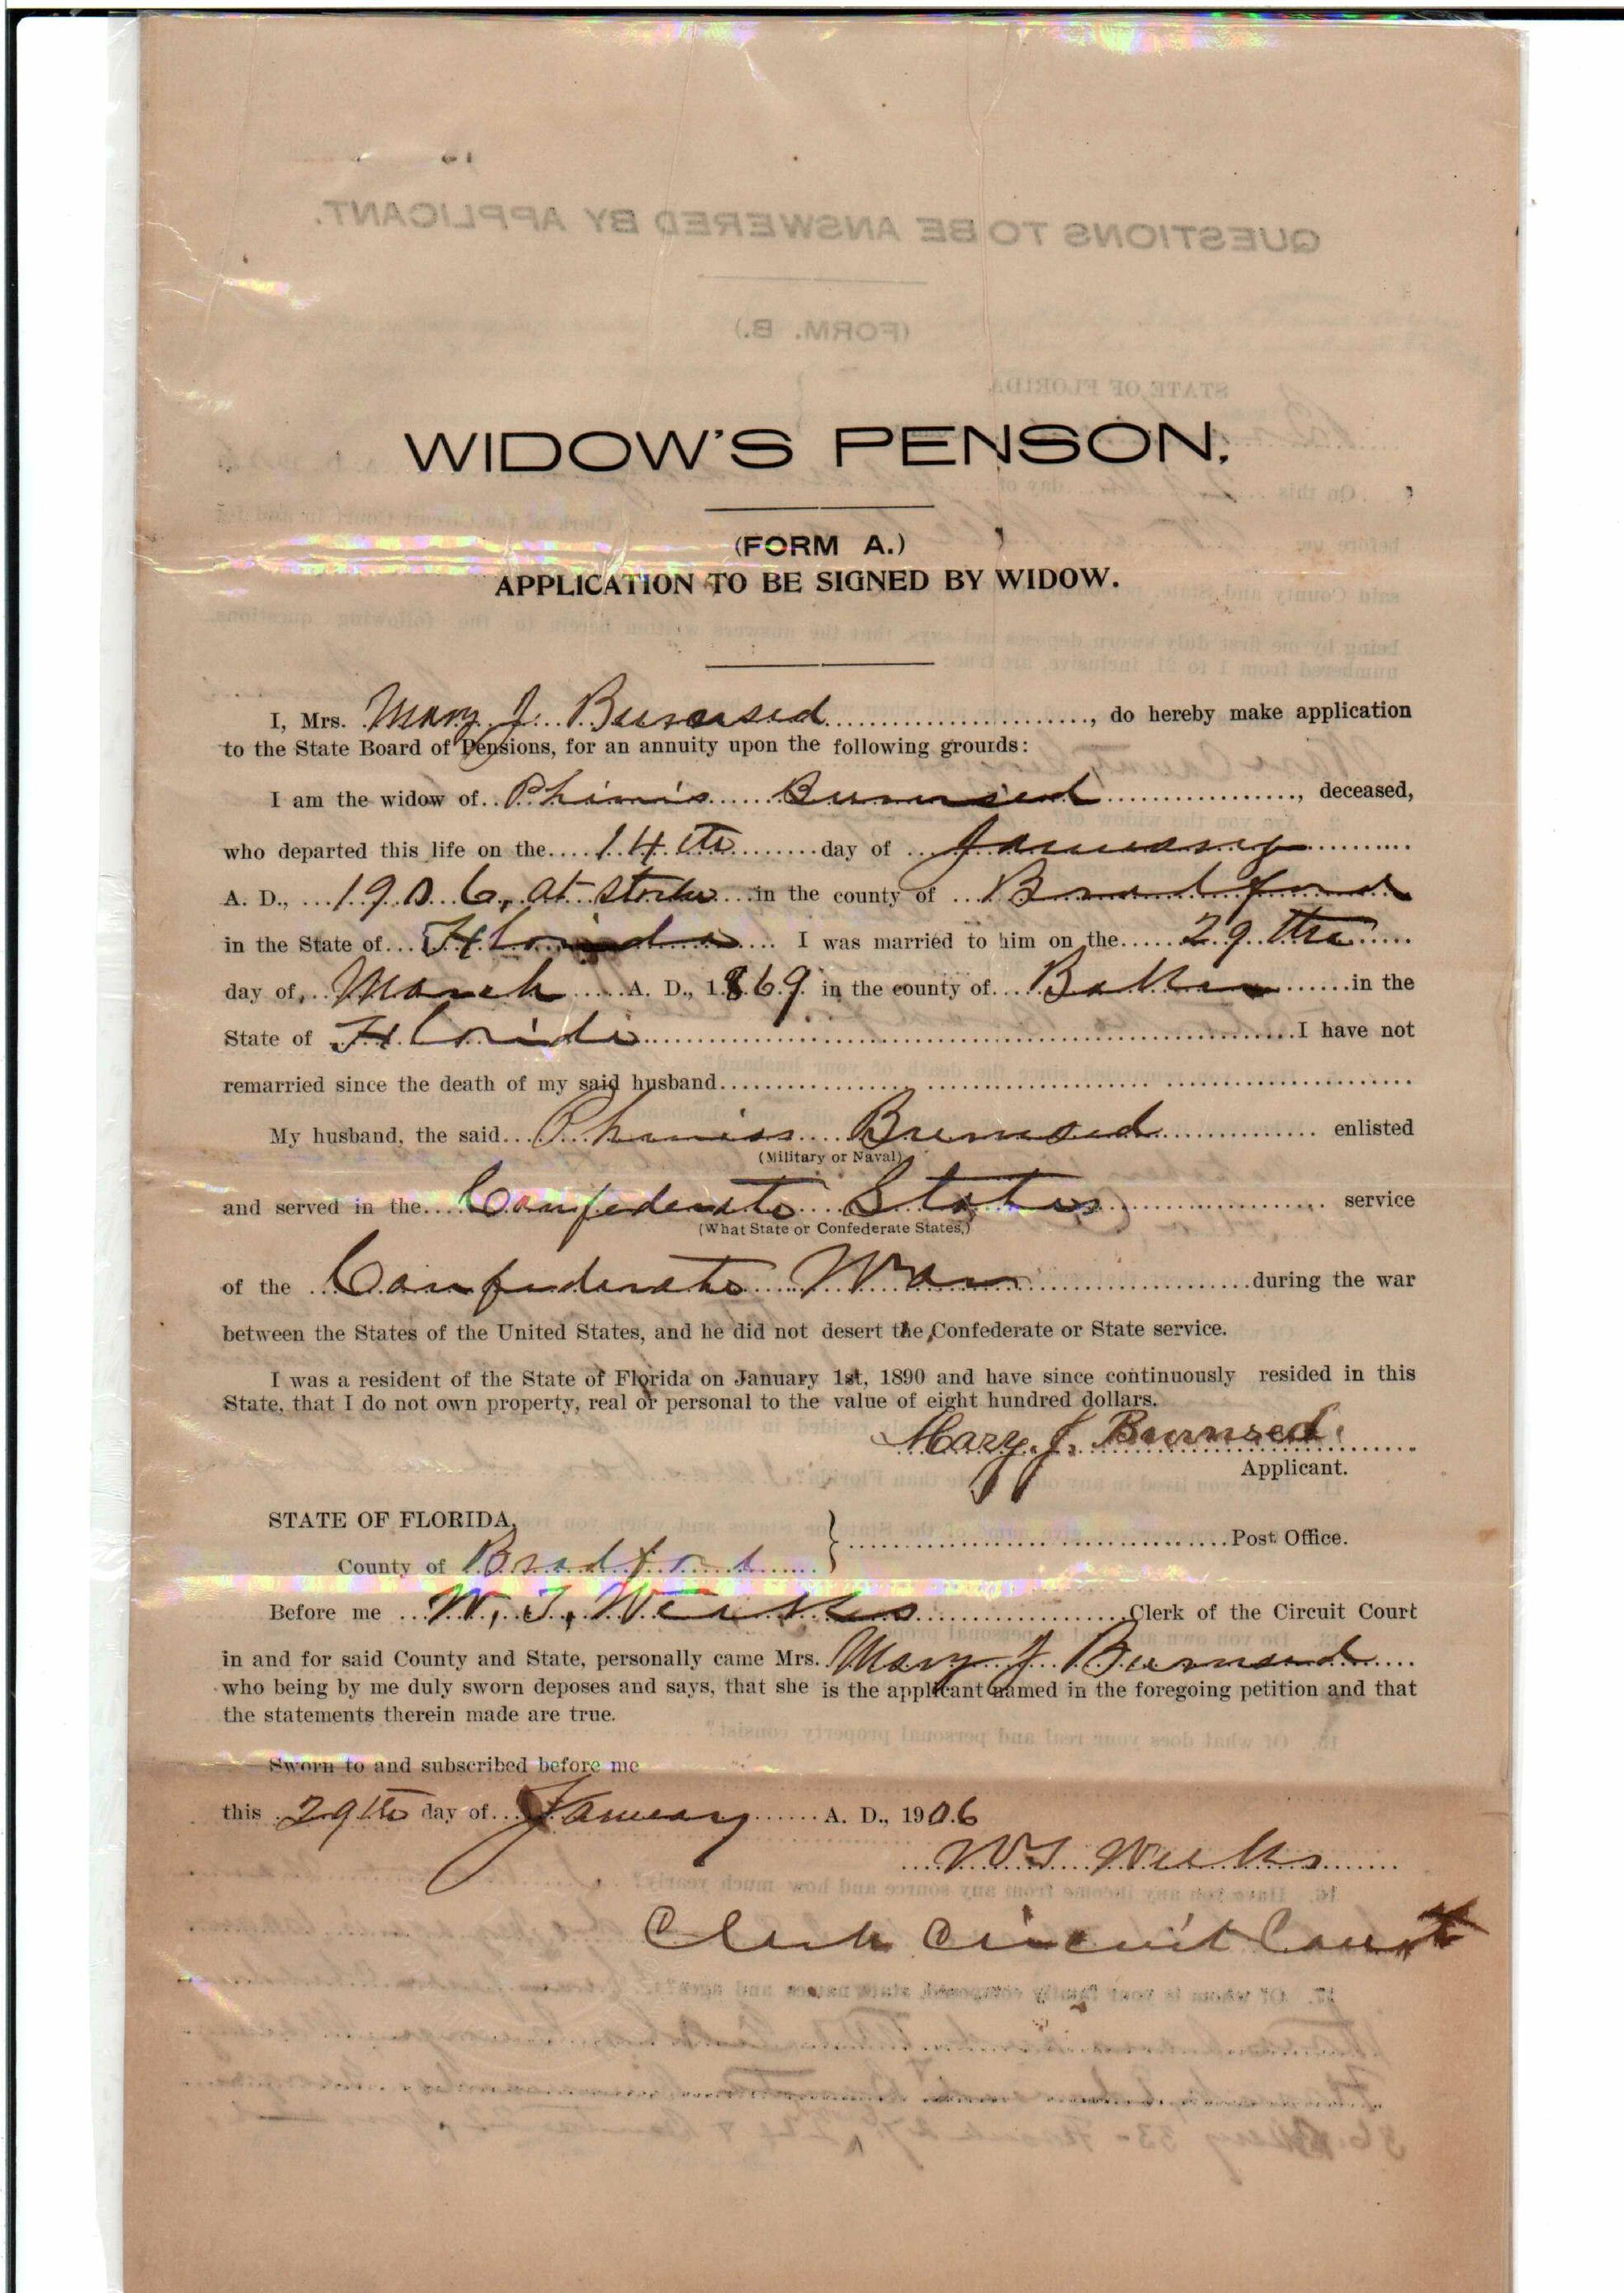 WIDOW'S PENSON.
(FORM A.)
APPLICATION TO BE SIGNED BY WIDOW.
I, Mrs. Mary J. Burnsed, do hereby make application
to the State Board of Pensions, for an annuity upon the following grounds:
I am the widow of Phinis Burnsed, deceased,
who departed this life on the 14th day of January
A. D., 1906, at Starke in the county of Bradford
in the State of Florida I was married to him on the 29th
day of March A. D., 1869 in the county of Baker in the
State of Florida I have not
remarried since the death of my said husband
My husband, the said Phinis Burnsed enlisted
(Military or Naval)
and served in the Confederate States service
(What State or Confederate States,)
of the Confederate War during the war
between the States of the United States, and he did not desert the Confederate or State service.
I was a resident of the State of Florida on January 1st, 1890 and have since continuously resided in this
State, that I do not own property, real or personal to the value of eight hundred dollars.
Mary J. Burnsed
Applicant.
STATE OF FLORIDA,
Post Office.
County of Bradford
Before me W. T. Weeks Clerk of the Circuit Court
in and for said County and State, personally came Mrs. Mary J Burnsed
who being by me duly sworn deposes and says, that she is the applicant named in the foregoing petition and that
the statements therein made are true.
Sworn to and subscribed before me
this 29th day of January A. D., 1906
W T Weeks
Clerk Circuit Court